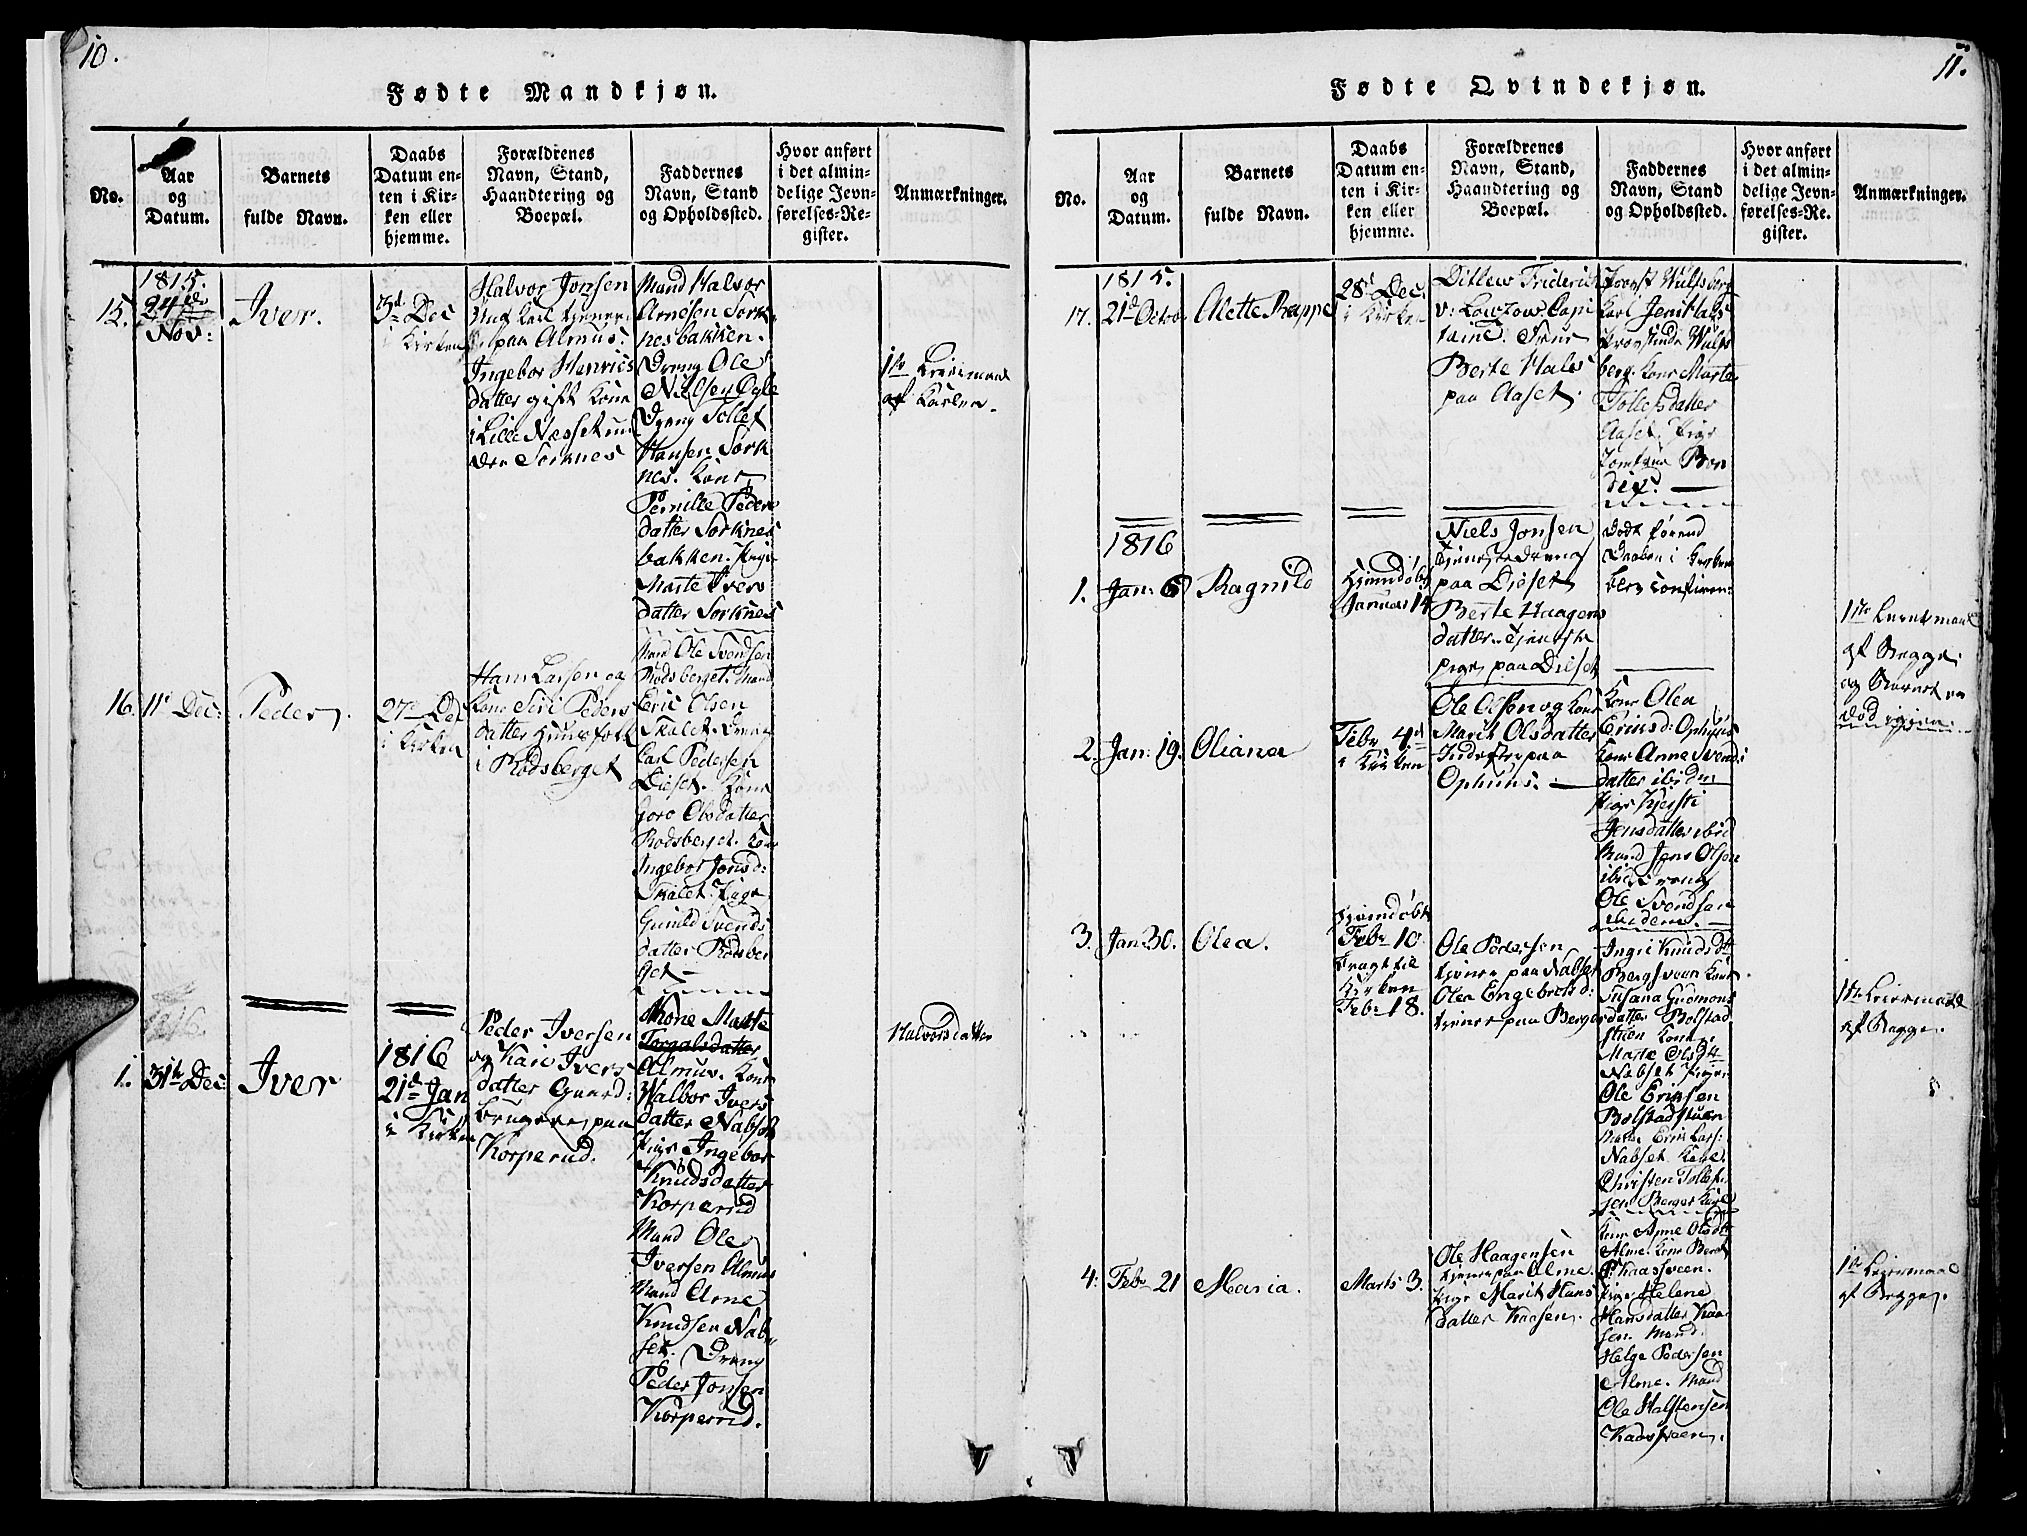 10.
Fødte Mandkjøn.
No.
Aar
og
Datum.
Barnets
fulde Navn.
Daabs
Datum en-
ten i Kir-
ken eller
hjemme.
Forældrenes
Navn, Stand,
Haandtering og
Boepæl.
Faddernes
Navn, Stand
og Opholdssted.
Hvor anført
i det almin-
delige Jevn-
førelses-Re-
gister.
Anmærkninger.
1815.
15.
24de
Nov:
Iver.
3d Dec
i Kirken
Halvor Jonsen
Ung Karl tjener
paa Almus.
Ingebor Henrics
datter gift Kone
i Lille Næsset un
der Sorknes
Mand Halvor
Arnesen Sork
nesbakken.
Dreng Ole
Nilsen Ogle
Dreng Tollef
Hansen Sork
nes. Kone
Pernille Peders
datter Sorknes
bakken. Pige
Marte Ivers
datter Sorknes
1te Leiermaal
af Karlen.
16.
11t Dec:
Peder
27d Dec
i Kirken
Hans Larsen og
Kone Siri Peders
datter Huusfolk
i Rodsberget
Mand Ole Svendsen
Rodsberget. Mand
Eric Olsen
Skalet. Dreng
Carl Pedersen
Dieset. Kone
Goro Olsdatter
Rodsberget. Kone
Ingebor Jonsd:
Skalet. Pige
Gunild Svends
datter Rodsber
get
1816.
1.
31te Dec:
Iver
1816
21d Jan
i Kirken
Peder Iversen
og Kari Ivers
datter Gaard:
brugere paa
Korperud.
Kone Marte
Torgalsdatter
Almus. Kone
Walbor Ivers
datter Nabset
Pige Ingebor
Knudsdatter
Korperud
Mand Ole
Iversen Almus
Mand Arne
Knudsen Nab
set. Dreng
Peder Jonsen
Korperud.
Halvorsdatter
11.
Fødte Qvindekjøn.
No.
Aar
og
Datum.
Barnets
fulde Navn.
Daabs
Datum en-
ten i Kir-
ken eller
hjemme.
Forældrenes
Navn, Stand,
Haandtering og
Boepæl.
Faddernes
Navn, Stand
og Opholdssted.
Hvor anført
i det almin-
delige Jevn-
førelses-Re-
gister.
Anmærkninger.
1815.
17.
21d Octob
Alette Rappe
28d Dec:
i Kirken
Ditlew Friderich
v: Lowzow. Capi
taine. Frue
Berte Hals
paa Aaset.
Provst Wulfsberg
Karl Jens Hals
Provstinde Wulfs
berg. Kone Marte
Tollefsdatter
Aaset. Pige
Jomfrue Ben
dix.
1816
1.
Jan: 6
Ragnild
Hjemdøbt
Januar 14
Niels Jonsen
tjeneste dreng
paa Dieset
Berte Haagens
datter. Tjeneste
pige paa Dieset
Død førend
Daaben i Kirken
blev confirm:
1te Leiermaal
af Begge
og Barnet er
død igien.
2.
Jan: 19.
Oliana
Febr 4d
i Kirken
Ole Olsen og Kone
Marit Olsdatter
Inderster paa
Ophuus.
Kone Olea
Ericsd: Ophuus
Kone Anne Svend:
datter ibidm
Pige Kjersti
Jensdatter ibid
Mand Jens Olsen
ibid. Dreng
Ole Svendsen
ibidem.
3.
Jan 30.
Olea.
Hjemdøbt
Febr 10.
Bragt til
Kirken
Febr 18.
Ole Pedersen
tjener paa Nabset
Olea Engebretsd:
tjener paa Berger
Ingri Knudsdtr
Bergsveen Kone
Susana Gudmons
datter Bolstad
stuen Kone
Marte Olsdtr
Nabset Pige
Ole Ericsen
Bolstadstuen
Mand Eric Lars:
Nabset Karl
Christen Tollefs
sen Berger Karl
1te Leiermaal
af Begge.
4:
Febr 21
Maria.
Marts 3.
Ole Haagensen
tjener paa Alme.
Pige Marit Hans
datter Kaasen.
Kone Anne Olsdtr
Alme. Kone Berit
P: Kaasveen.
Pige Helene
Hansdatter Kaa
sen. Mand
Helge Pedersen
Alme. Mand
Ole Halstensen
Kaasveen.
1te Leiermaal
af Begge.